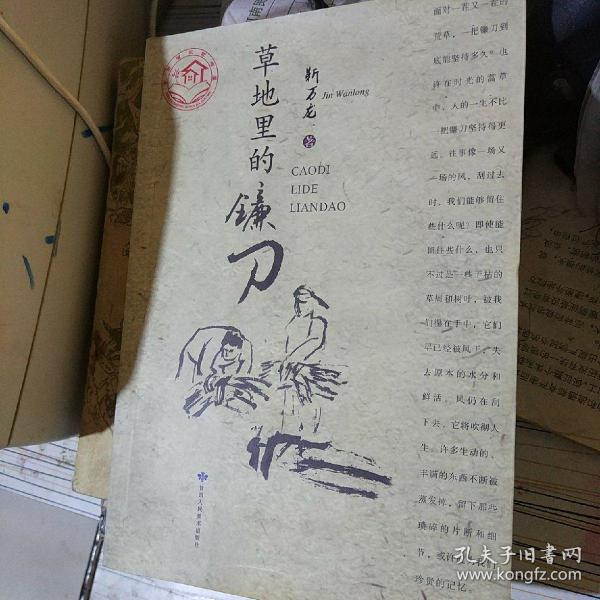 草地里的
镰刀
靳万龙 著
Jin Wanlong
CAODI
LIDE
LIANDAO
面对一茬又一茬的
荒草，一把镰刀到
底能坚持多久？也
许在时光的蒿草
中，人的一生不比
一把镰刀坚持得更
远。往事像一场又
一场的风，刮过去
时，我们能够留住
些什么呢？即使能
留住些什么，也只
不过是一些干枯的
草屑和树叶，被我
们攥在手中，它们
早已经被风干，失
去原本的水分和
鲜活。风仍在刮
下去，它将吹彻人
生，许多生动的、
丰满的东西不断被
蒸发掉，留下那些
琐碎的片断和细
节，或许
珍贵的记忆。
甘肃人民美术出版社
孔夫子旧书网
www.kongfz.com